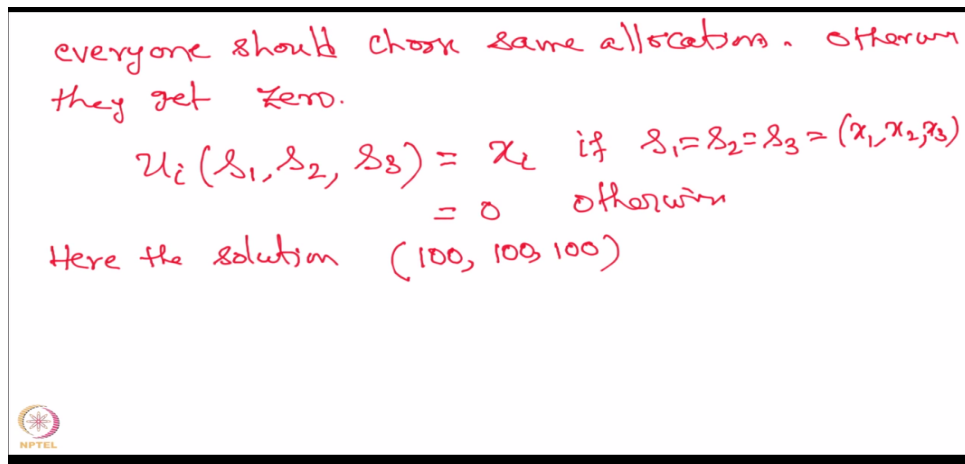 everyone should choose same allocations. otherwi
they get zero.
u_i (s_1, s_2, s_3) = x_i if s_1 = s_2 = s_3 = (x_1, x_2, x_3)
= 0 otherwise
Here the solution (100, 100, 100)
NPTEL